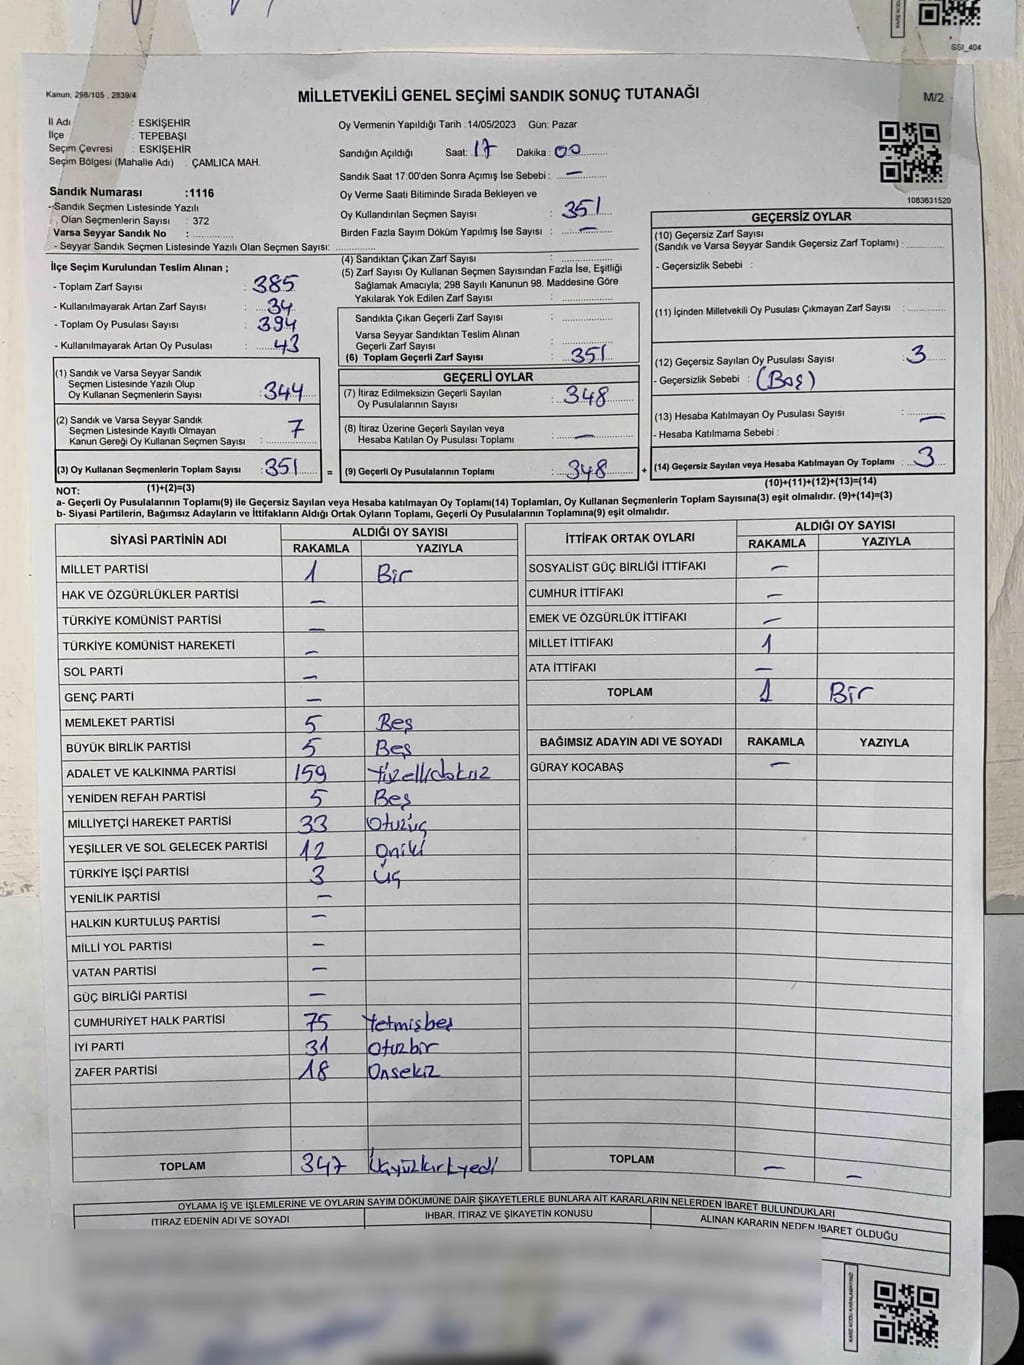 SSI_404
Kanun: 298/105 , 2839/4
MİLLETVEKİLİ GENEL SEÇİMİ SANDIK SONUÇ TUTANAĞI
M/2
İl Adı : ESKİŞEHİR
İlçe : TEPEBAŞI
Seçim Çevresi : ESKİŞEHİR
Seçim Bölgesi (Mahalle Adı) : ÇAMLICA MAH.
Sandık Numarası :1116
- Sandık Seçmen Listesinde Yazılı
Olan Seçmenlerin Sayısı : 372
Varsa Seyyar Sandık No :
- Seyyar Sandık Seçmen Listesinde Yazılı Olan Seçmen Sayısı:
Oy Vermenin Yapıldığı Tarih : 14/05/2023 Gün: Pazar
Sandığın Açıldığı Saat: 17 Dakika : 00
Sandık Saat 17:00'den Sonra Açılmış İse Sebebi : —
Oy Verme Saati Bitiminde Sırada Bekleyen ve
Oy Kullandırılan Seçmen Sayısı : 351
Birden Fazla Sayım Döküm Yapılmış İse Sayısı : —
1083631520
İlçe Seçim Kurulundan Teslim Alınan ;
- Toplam Zarf Sayısı : 385
- Kullanılmayarak Artan Zarf Sayısı : 34
- Toplam Oy Pusulası Sayısı : 394
- Kullanılmayarak Artan Oy Pusulası : 43
(1) Sandık ve Varsa Seyyar Sandık
Seçmen Listesinde Yazılı Olup
Oy Kullanan Seçmenlerin Sayısı : 344
(2) Sandık ve Varsa Seyyar Sandık
Seçmen Listesinde Kayıtlı Olmayan
Kanun Gereği Oy Kullanan Seçmen Sayısı : 7
(3) Oy Kullanan Seçmenlerin Toplam Sayısı : 351 =
(1)+(2)=(3)
(4) Sandıktan Çıkan Zarf Sayısı :
(5) Zarf Sayısı Oy Kullanan Seçmen Sayısından Fazla İse, Eşitliği
Sağlamak Amacıyla; 298 Sayılı Kanunun 98. Maddesine Göre
Yakılarak Yok Edilen Zarf Sayısı :
Sandıkta Çıkan Geçerli Zarf Sayısı :
Varsa Seyyar Sandıktan Teslim Alınan
Geçerli Zarf Sayısı :
(6) Toplam Geçerli Zarf Sayısı : 351
GEÇERLİ OYLAR
(7) İtiraz Edilmeksizin Geçerli Sayılan
Oy Pusulalarının Sayısı : 348
(8) İtiraz Üzerine Geçerli Sayılan veya
Hesaba Katılan Oy Pusulası Toplamı : —
(9) Geçerli Oy Pusulalarının Toplamı : 348 +
GEÇERSİZ OYLAR
(10) Geçersiz Zarf Sayısı
(Sandık ve Varsa Seyyar Sandık Geçersiz Zarf Toplamı) :
- Geçersizlik Sebebi :
(11) İçinden Milletvekili Oy Pusulası Çıkmayan Zarf Sayısı :
(12) Geçersiz Sayılan Oy Pusulası Sayısı : 3
- Geçersizlik Sebebi : (Boş)
(13) Hesaba Katılmayan Oy Pusulası Sayısı : —
- Hesaba Katılmama Sebebi :
(14) Geçersiz Sayılan veya Hesaba Katılmayan Oy Toplamı : 3
(10)+(11)+(12)+(13)=(14)
NOT:
a- Geçerli Oy Pusulalarının Toplamı(9) ile Geçersiz Sayılan veya Hesaba katılmayan Oy Toplamı(14) Toplamları, Oy Kullanan Seçmenlerin Toplam Sayısına(3) eşit olmalıdır. (9)+(14)=(3)
b- Siyasi Partilerin, Bağımsız Adayların ve İttifakların Aldığı Ortak Oyların Toplamı, Geçerli Oy Pusulalarının Toplamına(9) eşit olmalıdır.
SİYASİ PARTİNİN ADI ALDIĞI OY SAYISI
RAKAMLA YAZIYLA
MİLLET PARTİSİ 1 Bir
HAK VE ÖZGÜRLÜKLER PARTİSİ —
TÜRKİYE KOMÜNİST PARTİSİ —
TÜRKİYE KOMÜNİST HAREKETİ —
SOL PARTİ —
GENÇ PARTİ —
MEMLEKET PARTİSİ 5 Beş
BÜYÜK BİRLİK PARTİSİ 5 Beş
ADALET VE KALKINMA PARTİSİ 159 Yüzellidokuz
YENİDEN REFAH PARTİSİ 5 Beş
MİLLİYETÇİ HAREKET PARTİSİ 33 Otuzüç
YEŞİLLER VE SOL GELECEK PARTİSİ 12 Oniki
TÜRKİYE İŞÇİ PARTİSİ 3 Üç
YENİLİK PARTİSİ —
HALKIN KURTULUŞ PARTİSİ —
MİLLİ YOL PARTİSİ —
VATAN PARTİSİ —
GÜÇ BİRLİĞİ PARTİSİ —
CUMHURİYET HALK PARTİSİ 75 Yetmişbeş
İYİ PARTİ 31 Otuzbir
ZAFER PARTİSİ 18 Onsekiz
TOPLAM 347 Üçyüzkırkyedi
İTTİFAK ORTAK OYLARI ALDIĞI OY SAYISI
RAKAMLA YAZIYLA
SOSYALİST GÜÇ BİRLİĞİ İTTİFAKI —
CUMHUR İTTİFAKI —
EMEK VE ÖZGÜRLÜK İTTİFAKI —
MİLLET İTTİFAKI 1
ATA İTTİFAKI —
TOPLAM 1 Bir
BAĞIMSIZ ADAYIN ADI VE SOYADI RAKAMLA YAZIYLA
GÜRAY KOCABAŞ —
TOPLAM — —
OYLAMA İŞ VE İŞLEMLERİNE VE OYLARIN SAYIM DÖKÜMÜNE DAİR ŞİKAYETLERLE BUNLARA AİT KARARLARIN NELERDEN İBARET BULUNDUKLARI
İTİRAZ EDENİN ADI VE SOYADI İHBAR, İTİRAZ VE ŞİKAYETİN KONUSU ALINAN KARARIN NEDEN İBARET OLDUĞU
KARE KODU KARALAMAYINIZ!